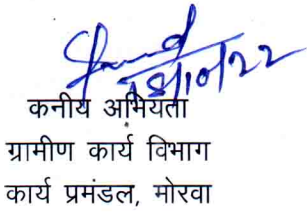 18/10/22
कनीय अभियंता
ग्रामीण कार्य विभाग
कार्य प्रमंडल, मोरवा